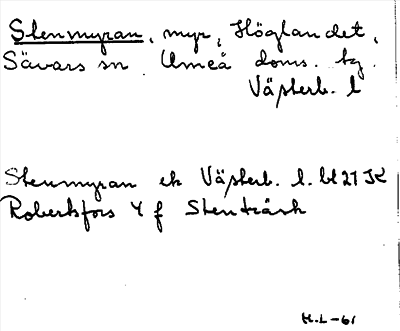 Stenmyran, myr, Höglandet,
Sävars sn. Umeå doms. tg.
Västerb. l
Stenmyran ek Västerb. l. bl 21 JK
Robertsfors 4 f Stenträsk
H.L-61